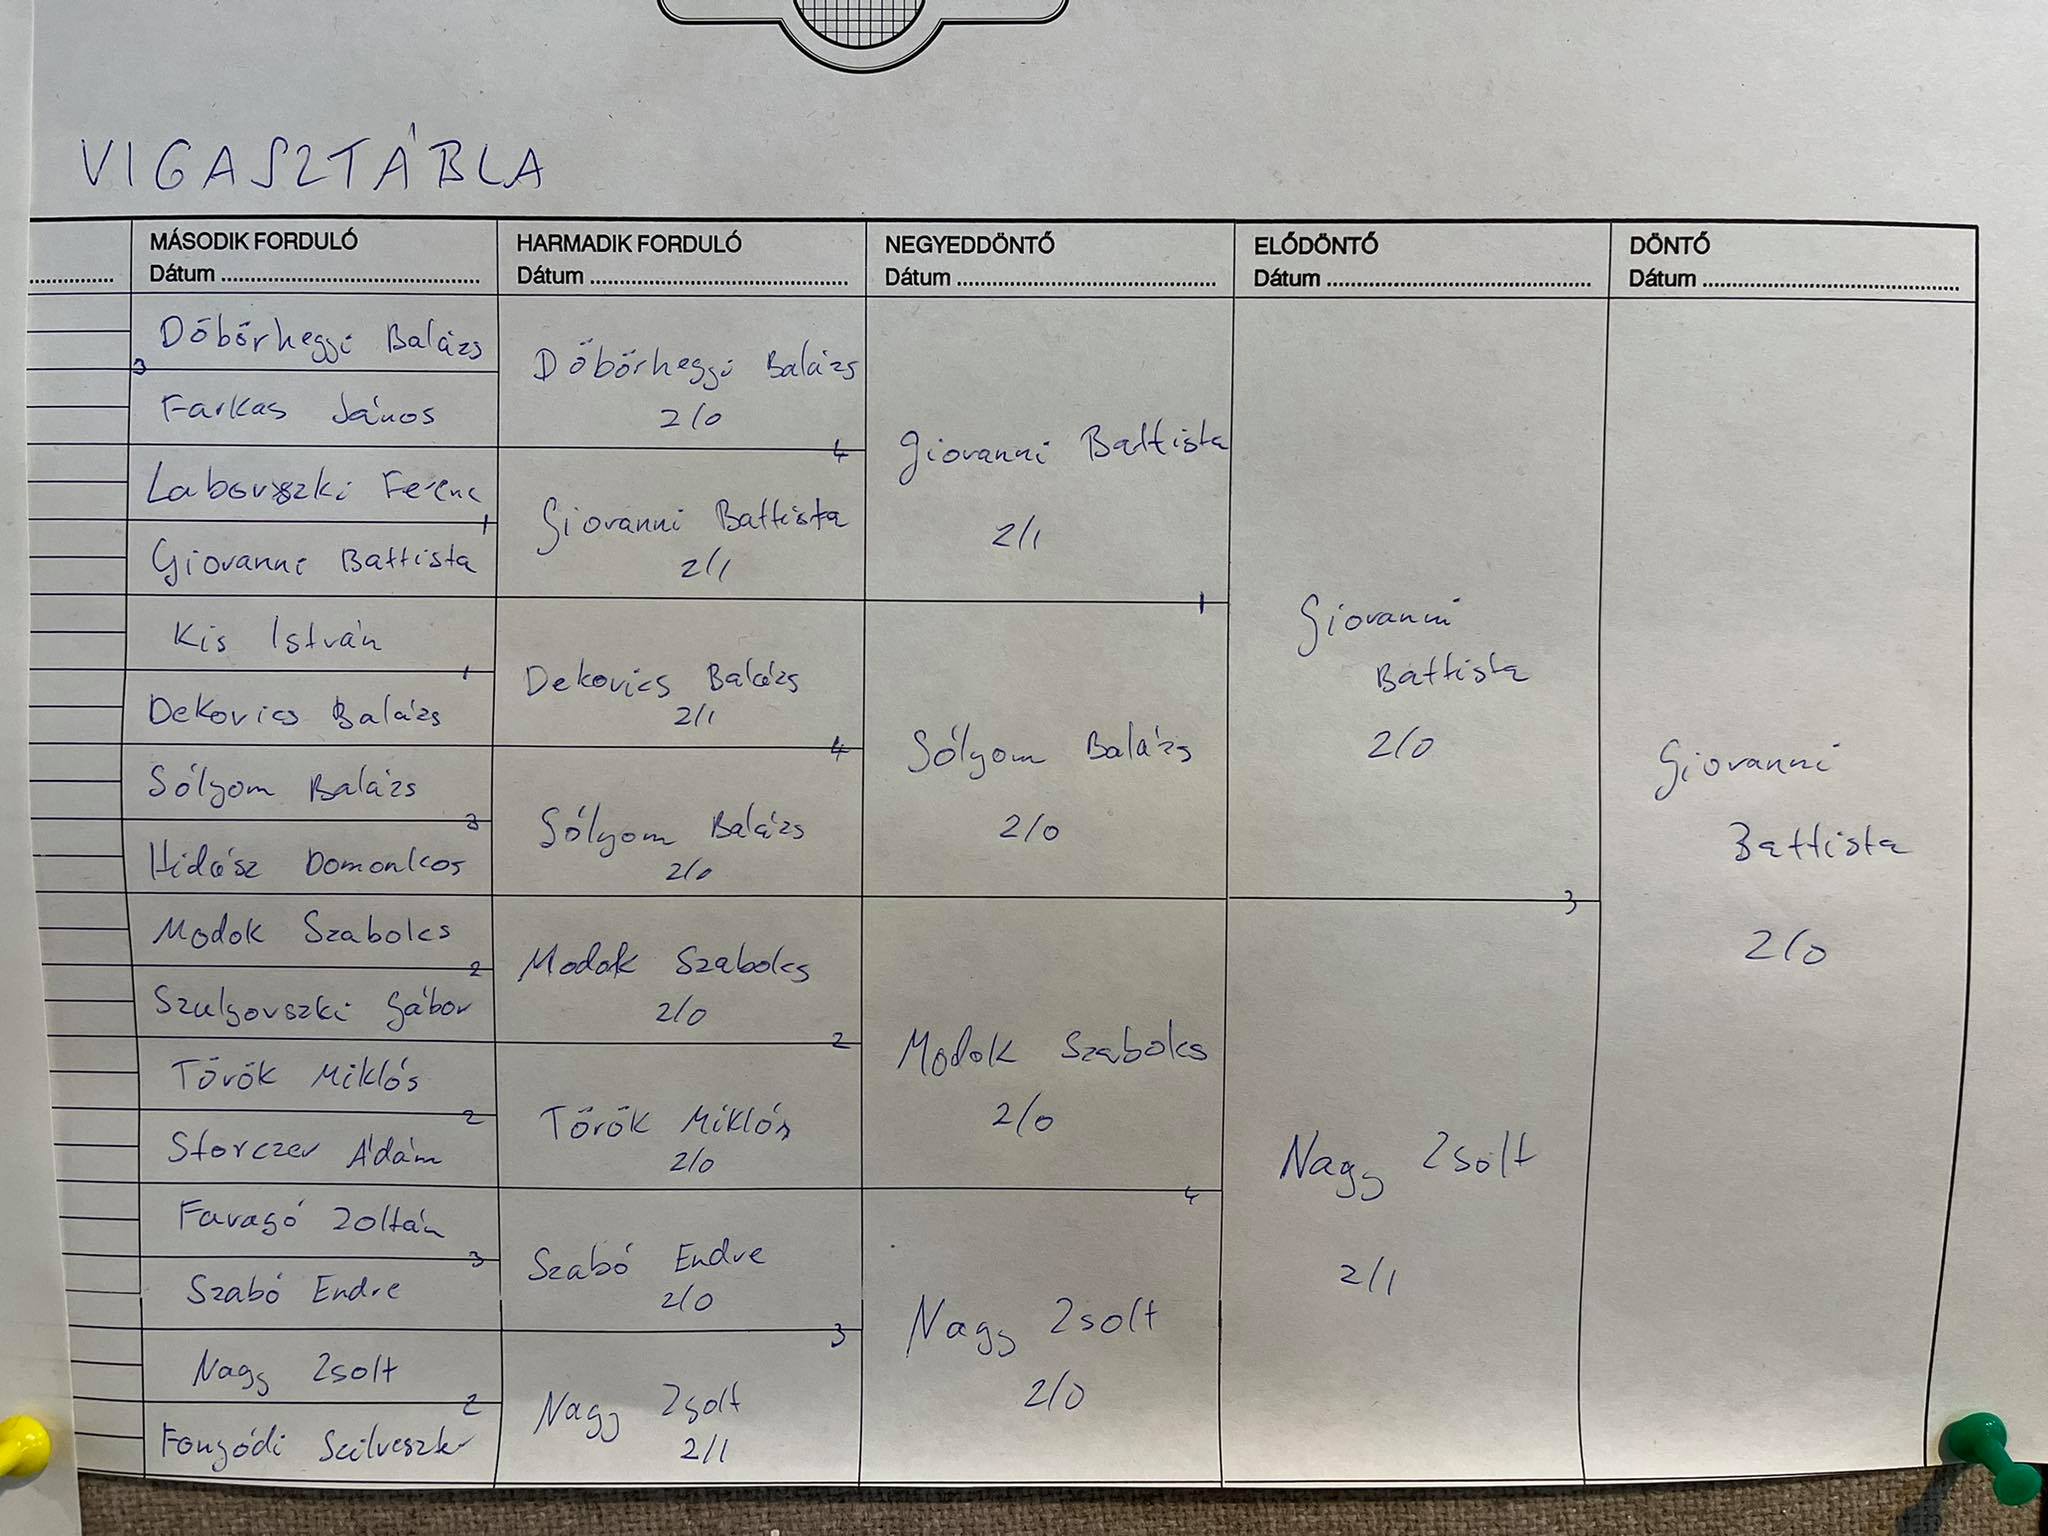 VIGASZTÁBLA
MÁSODIK FORDULÓ
Dátum
HARMADIK FORDULÓ
Dátum
NEGYEDDÖNTŐ
Dátum
ELŐDÖNTŐ
Dátum
DÖNTŐ
Dátum
Dőbőrhegyi Balázs
3
Farkas János
Laborszki Ferenc
1
Giovanni Battista
Kis István
1
Dekovics Balázs
Sólyom Balázs
3
Hidász Domonkos
Modok Szabolcs
2
Szulyovszki Gábor
Török Miklós
2
Storczer Ádám
Faragó Zoltán
3
Szabó Endre
Nagy Zsolt
2
Fonyódi Szilveszter
Dőbőrhegyi Balázs
2/0
4
Giovanni Battista
2/1
Dekovics Balázs
2/1
4
Sólyom Balázs
2/0
Modok Szabolcs
2/0
2
Török Miklós
2/0
Szabó Endre
2/0
3
Nagy Zsolt
2/1
Giovanni Battista
2/1
1
Sólyom Balázs
2/0
Modok Szabolcs
2/0
4
Nagy Zsolt
2/0
Giovanni
Battista
2/0
3
Nagy Zsolt
2/1
Giovanni
Battista
2/0